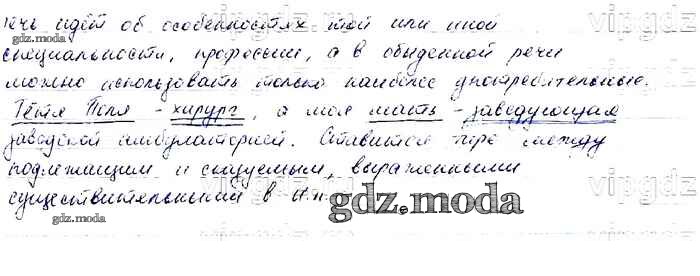 речь идёт об особенностях той или иной
специальности, профессии, а в обыденной речи
можно использовать только наиболее употребительные.
Тётя Поля - хирург, а моя мать - заведующая
заводской амбулаторией. Ставится тире между
подлежащим и сказуемым, выраженными
существительными в И.п.
gdz.moda
gdz.moda
gdz.moda
gdz.moda
vipgdz
vipgdz
vipgdz